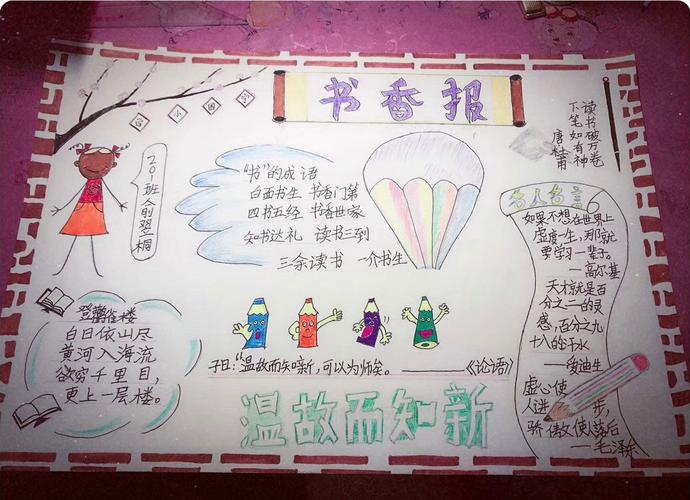 书香报
201班俞翌桐
"书"的成语
白面书生 书香门第
四书五经 书香世家
知书达礼 读书三到
三余读书 一介书生
读书破万卷
下笔如有神
唐 杜甫
名人名言
如果不想在世界上
虚度一生，那就
要学习一辈子。
—高尔基
天才就是百
分之二的灵
感，百分之九
十八的汗水
—爱迪生
虚心使
人进步，
骄傲使人落后
—毛泽东
登鹳雀楼
白日依山尽
黄河入海流
欲穷千里目，
更上一层楼。
子曰："温故而知新，可以为师矣。——《论语》
温故而知新